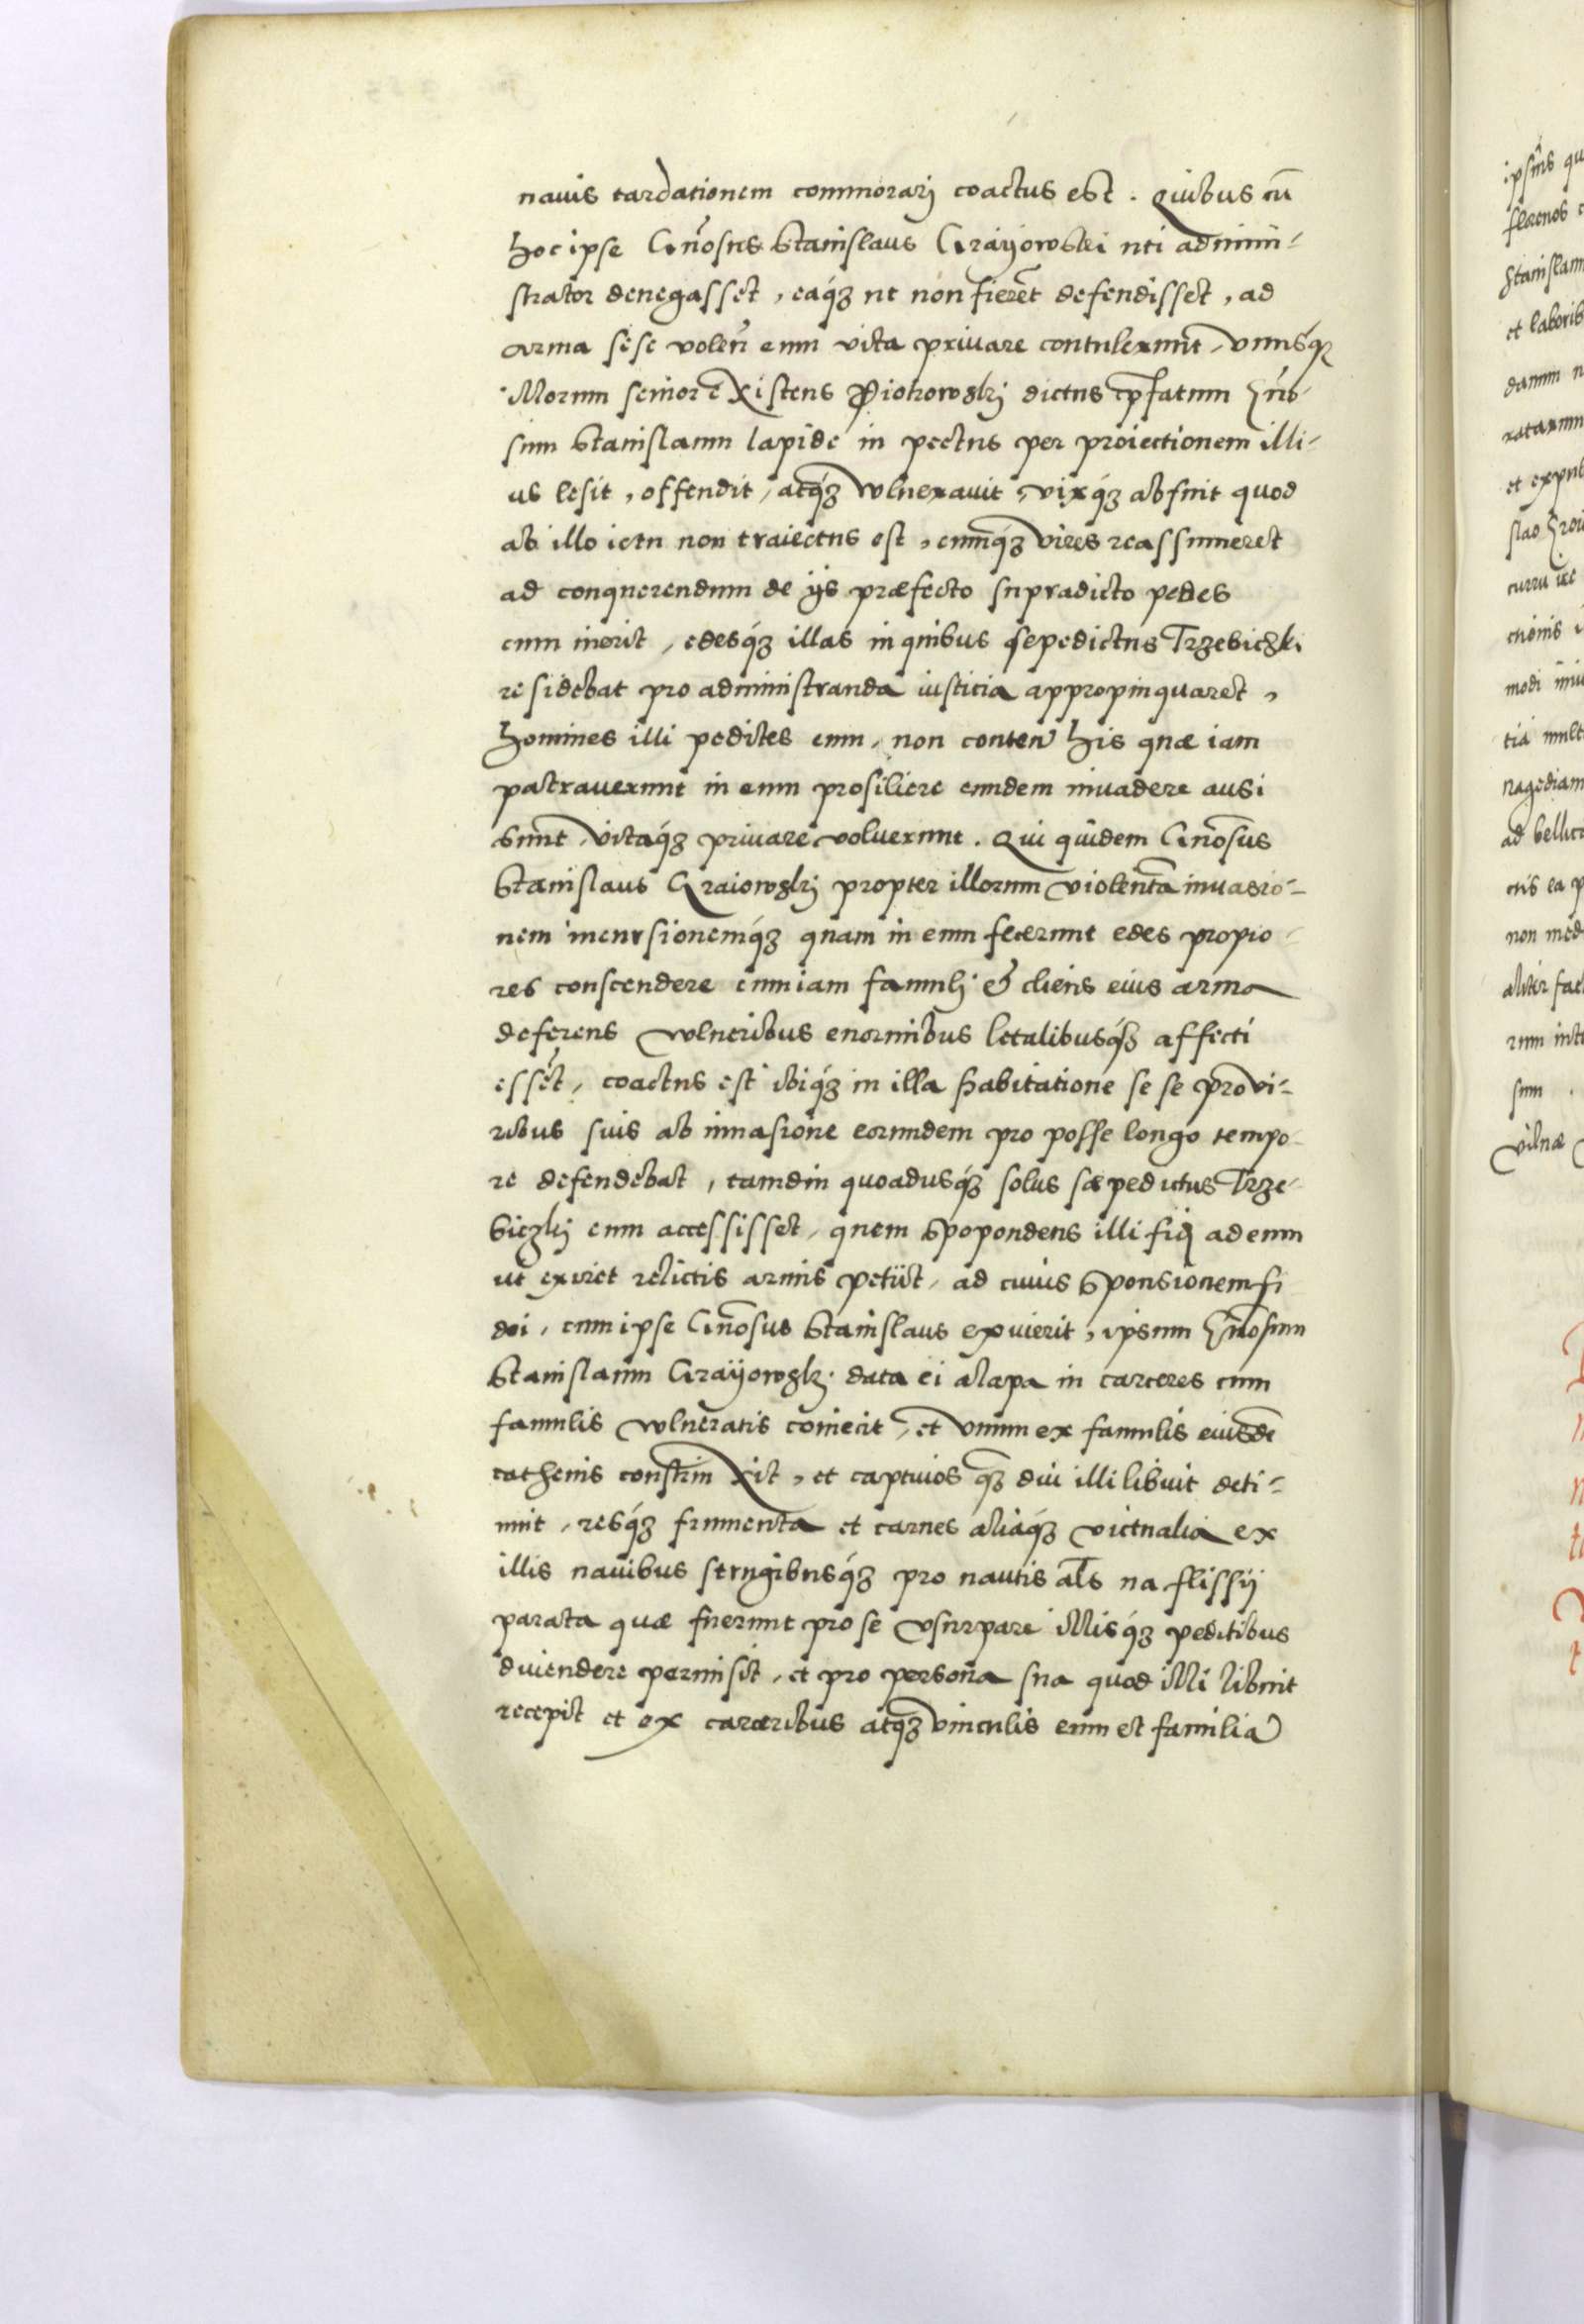 nauis tardationem commorarj coactus est. Quibus cū
hoc ipse Gn̄osus Stanislaus Grayowski uti admini-
strator denegasset, eaq́ȝ ne non fierēt defendisset, ad
arma sese volen̄ eum vita priuare contulerunt, vnusq́ȝ
illorum senior existens Piotrowskj dictus p̄fatum Gn̄o-
sum Stanislaum lapide in pectus per proiectionem illi-
us lesit, offendit, atq́ȝ vulnerauit, vixq́ȝ abfuit quod
ab illo ictu non traiectus est, cumq́ȝ vires reassumeret
ad conquerendum de ijs præfecto supradicto pedes
cum inerit, edesq́ȝ illas in quibus sepedictus Trzebiczki
residebat pro administranda iusticia appropinquaret,
homines illi pedites eum, non conten̄ his quæ iam
patrauerunt in eum prosiliere eundem inuadere ausi
sunt, vitaq́ȝ priuare voluerunt. Qui quidem Gn̄osus
Stanislaus Graiowskj propter illorum violentā inuasio-
nem incursionemq́ȝ quam in eum fecerunt edes propio-
res conscendere cum iam famulj & cliens eius arma
deferens vulneribus enormibus letalibusq́ȝ affecti
essēt, coactus est ibiq́ȝ in illa habitatione se se pro vi-
ribus suis ab inuasione eorundem pro posse longo tempo-
re defendebat, tamdiu quoadusq́ȝ solus sæpedictus Trze-
biczkj eum accessisset, quem spopondens illi fid̨ ad eum
ut exiret relictis armis petiit, ad cuius sponsionem fi
dei, cum ipse Gn̄osus Stanislaus exiuierit, ipsum Gn̄osum
Stanislaum Grayowskj data ei alapa in carceres cum
famulis vulneratis coniecit, et vnum ex famulis eiusdē
cathenis constrinxit, et captiuos q̄ȝ diu illi libuit deti-
nuit, resq́ȝ frumenta et carnes aliaq́ȝ victualia ex
illis nauibus strugibusq́ȝ pro nautis al̄s na flissij
parata quæ fuerunt pro se vsurpare illisq́ȝ peditibus
diuendere permisit, et pro persona sua quod illi libuit
recepit et ex carceribus atq́ȝ vinculis eum et familiā